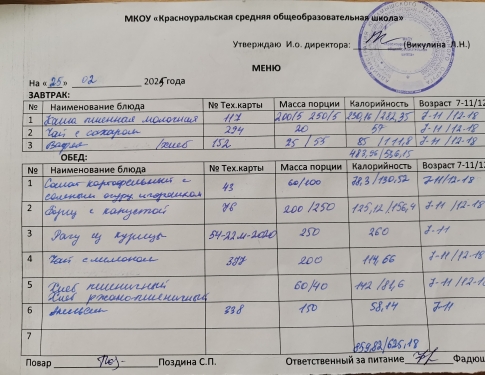 МКОУ «Красноуральская средняя общеобразовательная школа»
Утверждаю И.о. директора: (Викулина Л.Н.)
МЕНЮ
На «25» 02 2025 года
ЗАВТРАК:
№ Наименование блюда № Тех.карты Масса порции Калорийность Возраст 7-11/12
1 Каша пшенная молочная 117 200/5 250/5 7-11 /12-18
2 Чай с сахаром 294 20 57 7-11 /12-18
3 Вафли /хлеб 152 25 / 55 85 /111,8 7-11 /12-18
ОБЕД:
№ Наименование блюда № Тех.карты Масса порции Калорийность Возраст 7-11/12
1 Салат картофельный с
соленым огур. и горошком 43 60/100 78,3 /130,52 7-11/12-18
2 Борщ с капустой 76 200 /250 125,12 /156,4 7-11 /12-18
3 Рагу из курицы 54-22м-2020 250 260 7-11
4 Чай с лимоном 377 200 7-11 /12-18
5 Хлеб пшеничный
Хлеб ржано-пшеничный 60/40 142 /82,6 7-11 /12-18
6 Апельсин 338 150 58,14 7-11
7
Повар Поздина С.П. Ответственный за питание Фадюш